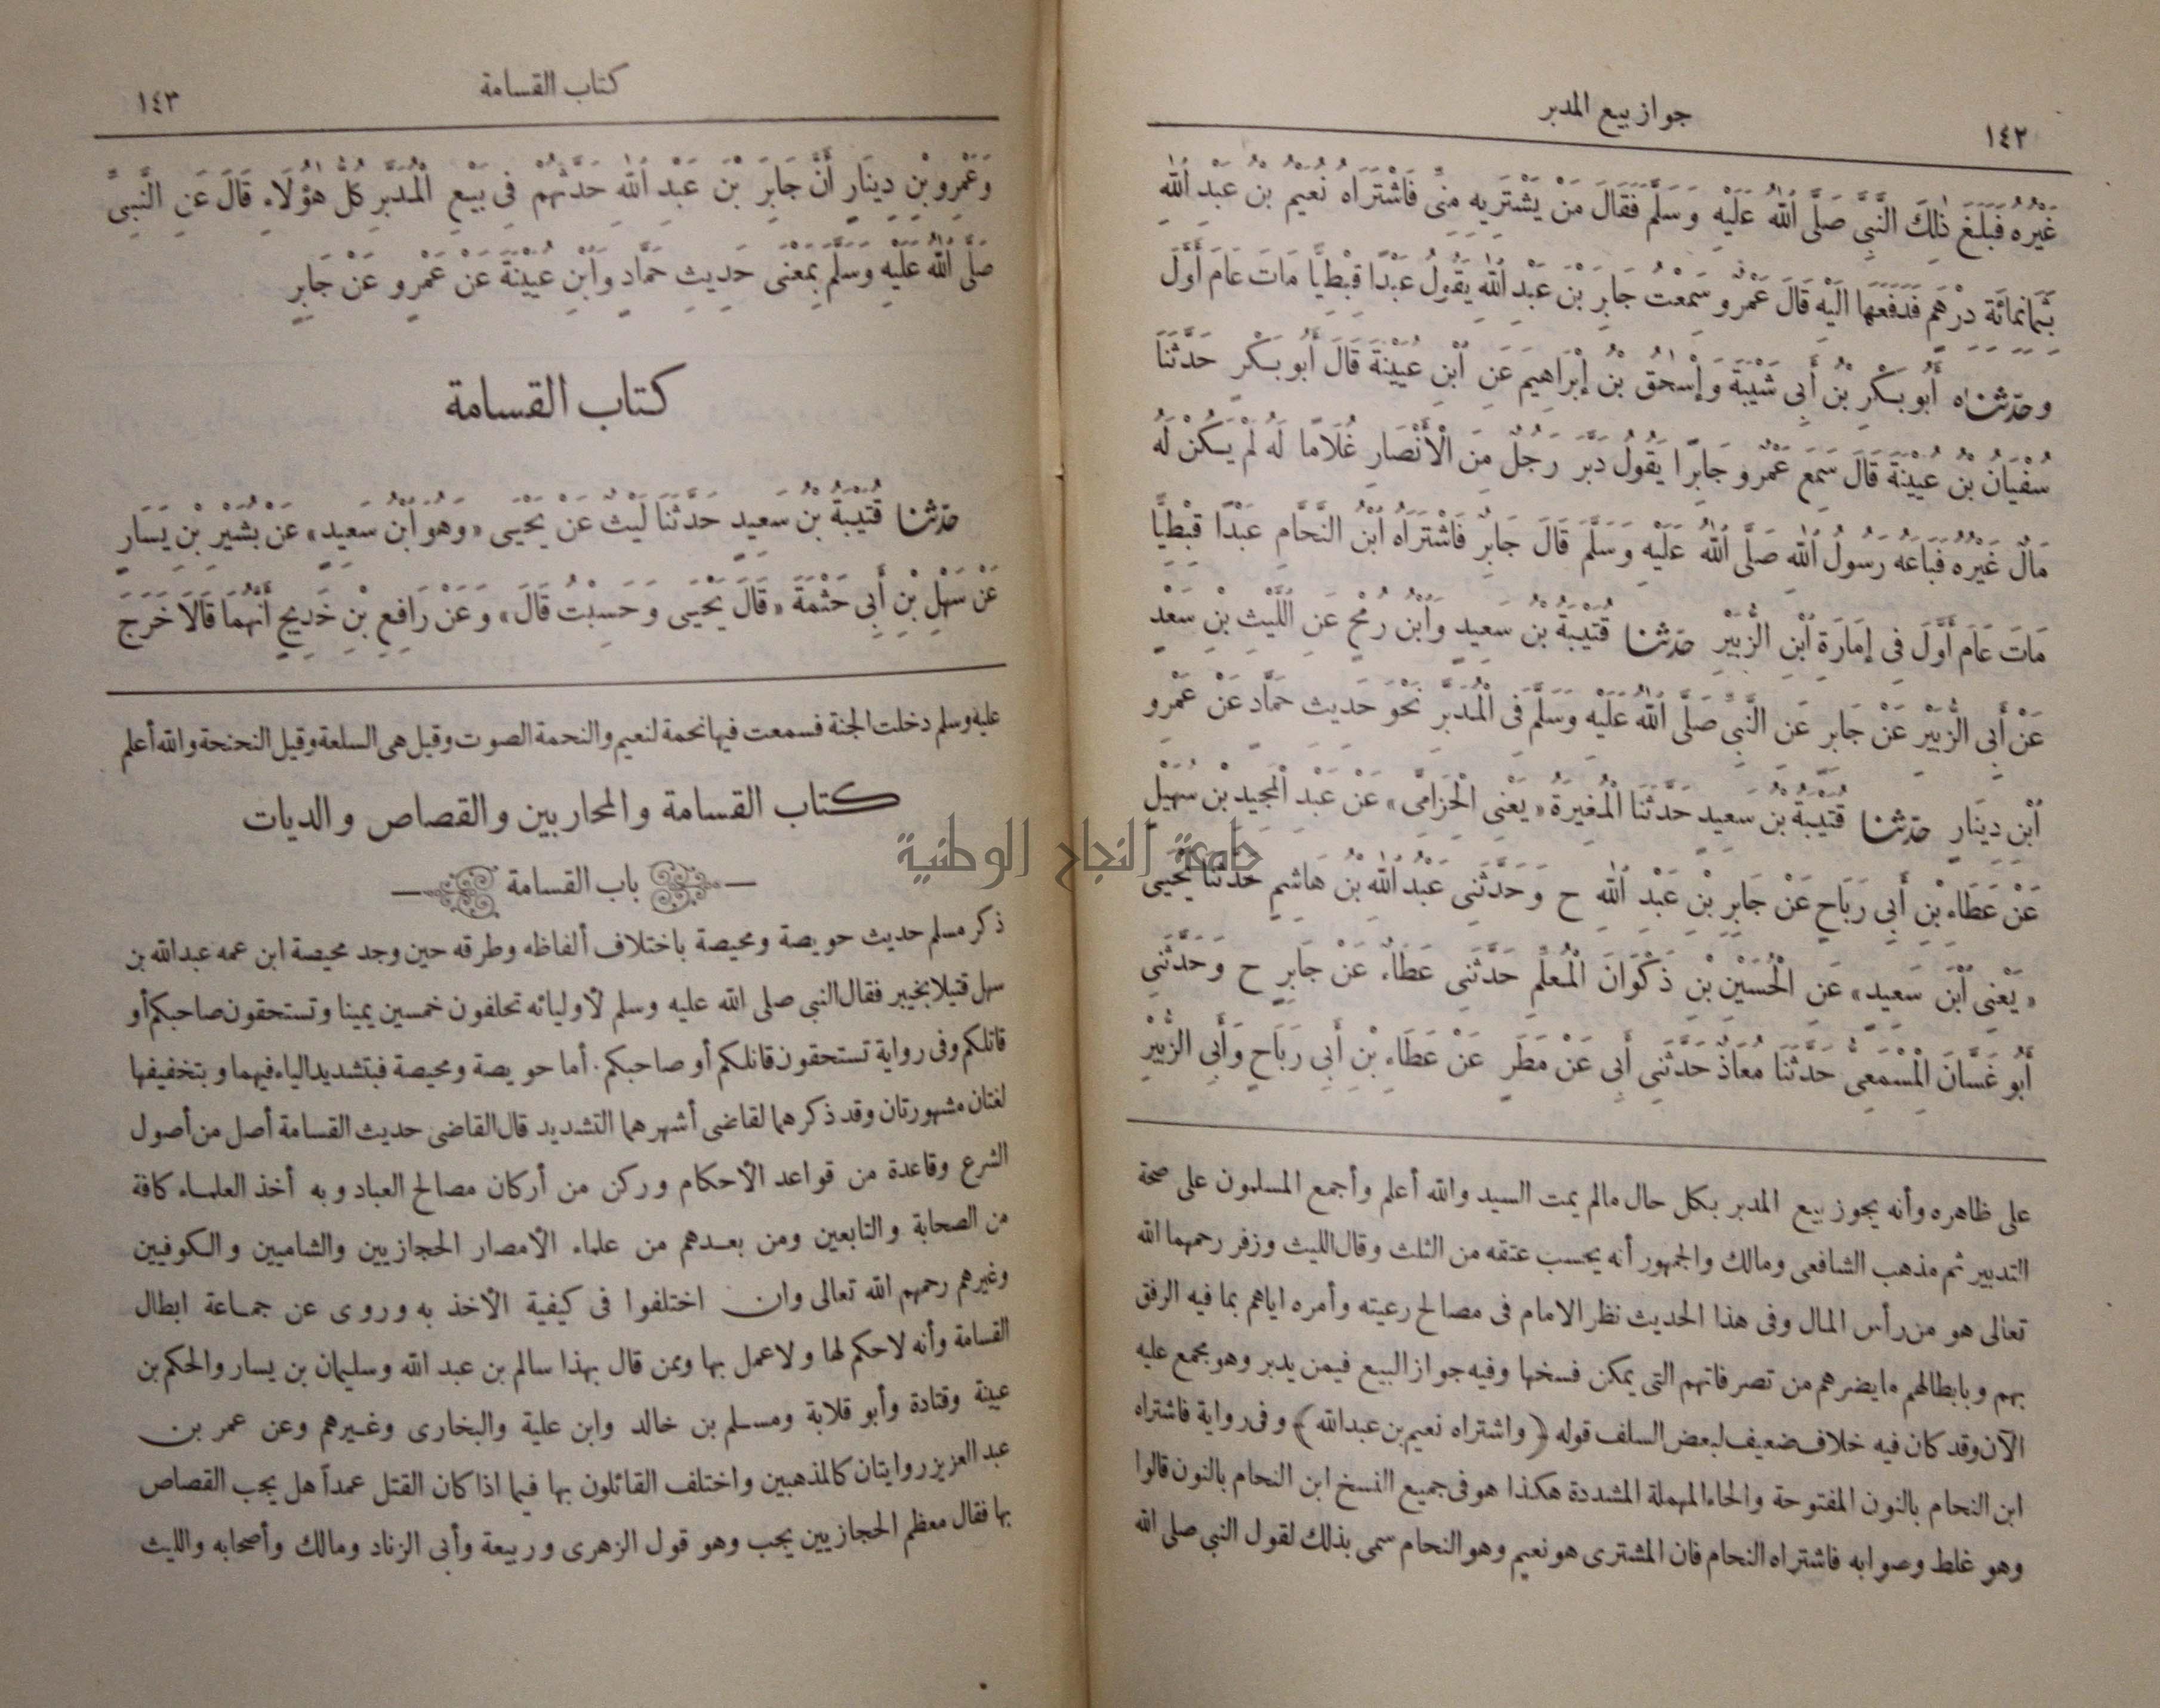 جواز بيع المدبر
١٤٢
غَيْرُهُ فَبَلَغَ ذٰلِكَ النَّبِيَّ صَلَّى اللّٰهُ عَلَيْهِ وَسَلَّمَ فَقَالَ مَنْ يَشْتَرِيهِ مِنِّي فَاشْتَرَاهُ نُعَيْمُ بْنُ عَبْدِ اللّٰهِ
بِثَمَانِمِائَةِ دِرْهَمٍ فَدَفَعَهَا إِلَيْهِ قَالَ عَمْرٌو سَمِعْتُ جَابِرَ بْنَ عَبْدِ اللّٰهِ يَقُولُ عَبْدًا قِبْطِيًّا مَاتَ عَامَ أَوَّلَ
وحدثناه أَبُو بَكْرِ بْنُ أَبِي شَيْبَةَ وَإِسْحٰقُ بْنُ إِبْرَاهِيمَ عَنِ ابْنِ عُيَيْنَةَ قَالَ أَبُو بَكْرٍ حَدَّثَنَا
سُفْيَانُ بْنُ عُيَيْنَةَ قَالَ سَمِعَ عَمْرٌو جَابِرًا يَقُولُ دَبَّرَ رَجُلٌ مِنَ الْأَنْصَارِ غُلَامًا لَهُ لَمْ يَكُنْ لَهُ
مَالٌ غَيْرُهُ فَبَاعَهُ رَسُولُ اللّٰهِ صَلَّى اللّٰهُ عَلَيْهِ وَسَلَّمَ قَالَ جَابِرٌ فَاشْتَرَاهُ ابْنُ النَّحَّامِ عَبْدًا قِبْطِيًّا
مَاتَ عَامَ أَوَّلَ فِي إِمَارَةِ ابْنِ الزُّبَيْرِ حدثنا قُتَيْبَةُ بْنُ سَعِيدٍ وَابْنُ رُمْحٍ عَنِ اللَّيْثِ بْنِ سَعْدٍ
عَنْ أَبِي الزُّبَيْرِ عَنْ جَابِرٍ عَنِ النَّبِيِّ صَلَّى اللّٰهُ عَلَيْهِ وَسَلَّمَ فِي الْمُدَبَّرِ نَحْوَ حَدِيثِ حَمَّادٍ عَنْ عَمْرِو
ابْنِ دِينَارٍ حدثنا قُتَيْبَةُ بْنُ سَعِيدٍ حَدَّثَنَا الْمُغِيرَةُ «يَعْنِي الْحِزَامِيَّ» عَنْ عَبْدِ الْمَجِيدِ بْنِ سُهَيْلٍ
عَنْ عَطَاءِ بْنِ أَبِي رَبَاحٍ عَنْ جَابِرِ بْنِ عَبْدِ اللّٰهِ ح وَحَدَّثَنِي عَبْدُ اللّٰهِ بْنُ هَاشِمٍ حَدَّثَنَا يَحْيَى
«يَعْنِي ابْنَ سَعِيدٍ» عَنِ الْحُسَيْنِ بْنِ ذَكْوَانَ الْمُعَلِّمِ حَدَّثَنِي عَطَاءٌ عَنْ جَابِرٍ ح وَحَدَّثَنِي
أَبُو غَسَّانَ الْمِسْمَعِيُّ حَدَّثَنَا مُعَاذٌ حَدَّثَنِي أَبِي عَنْ مَطَرٍ عَنْ عَطَاءِ بْنِ أَبِي رَبَاحٍ وَأَبِي الزُّبَيْرِ
على ظاهره وأنه يجوز بيع المدبر بكل حال مالم يمت السيد والله أعلم وأجمع المسلمون على صحة
التدبير ثم مذهب الشافعى ومالك والجمهور أنه يحسب عتقه من الثلث وقال الليث وزفر رحمهما الله
تعالى هو من رأس المال وفى هذا الحديث نظر الامام فى مصالح رعيته وأمره اياهم بما فيه الرفق
بهم وبابطالهم مايضرهم من تصرفاتهم التى يمكن فسخها وفيه جواز البيع فيمن يدبر وهو مجمع عليه
الآن وقد كان فيه خلاف ضعيف لبعض السلف قوله ﴿واشتراه نعيم بن عبدالله﴾ وفى رواية فاشتراه
ابن النحام بالنون المفتوحة والحاء المهملة المشددة هكذا هو فى جميع النسخ ابن النحام بالنون قالوا
وهو غلط وصوابه فاشتراه النحام فان المشترى هو نعيم وهو النحام سمى بذلك لقول النبى صلى الله
كتاب القسامة
١٤٣
وَعَمْرِو بْنِ دِينَارٍ أَنَّ جَابِرَ بْنَ عَبْدِ اللّٰهِ حَدَّثَهُمْ فِي بَيْعِ الْمُدَبَّرِ كُلُّ هٰؤُلَاءِ قَالَ عَنِ النَّبِيِّ
صَلَّى اللّٰهُ عَلَيْهِ وَسَلَّمَ بِمَعْنَى حَدِيثِ حَمَّادٍ وَابْنِ عُيَيْنَةَ عَنْ عَمْرٍو عَنْ جَابِرٍ
كتاب القسامة
حدثنا قُتَيْبَةُ بْنُ سَعِيدٍ حَدَّثَنَا لَيْثٌ عَنْ يَحْيَى «وَهُوَ ابْنُ سَعِيدٍ» عَنْ بُشَيْرِ بْنِ يَسَارٍ
عَنْ سَهْلِ بْنِ أَبِي حَثْمَةَ «قَالَ يَحْيَى وَحَسِبْتُ قَالَ» وَعَنْ رَافِعِ بْنِ خَدِيجٍ أَنَّهُمَا قَالَا خَرَجَ
عليه وسلم دخلت الجنة فسمعت فيها نحمة لنعيم والنحمة الصوت وقيل هى السلعة وقيل النحنحة والله أعلم
كتاب القسامة والمحاربين والقصاص والديات
باب القسامة
ذكر مسلم حديث حويصة ومحيصة باختلاف ألفاظه وطرقه حين وجد محيصة ابن عمه عبدالله بن
سهل قتيلا بخيبر فقال النبى صلى الله عليه وسلم لأوليائه تحلفون خمسين يمينا وتستحقون صاحبكم أو
قاتلكم وفى رواية تستحقون قاتلكم أو صاحبكم. أما حويصة ومحيصة فبتشديد الياء فيهما وبتخفيفها
لغتان مشهورتان وقد ذكرهما لقاضى أشهرهما التشديد قال القاضى حديث القسامة أصل من أصول
الشرع وقاعدة من قواعد الأحكام وركن من أركان مصالح العباد وبه أخذ العلماء كافة
من الصحابة والتابعين ومن بعدهم من علماء الأمصار الحجازيين والشاميين والكوفيين
وغيرهم رحمهم الله تعالى وان اختلفوا فى كيفية الأخذ به وروى عن جماعة ابطال
القسامة وأنه لاحكم لها ولاعمل بها وممن قال بهذا سالم بن عبد الله وسليمان بن يسار والحكم بن
عيينة وقتادة وأبو قلابة ومسلم بن خالد وابن علية والبخارى وغيرهم وعن عمر بن
عبد العزيز روايتان كالمذهبين واختلف القائلون بها فيما اذا كان القتل عمداً هل يجب القصاص
بها فقال معظم الحجازيين يجب وهو قول الزهرى وربيعة وأبى الزناد ومالك وأصحابه والليث
جامعة النجاح الوطنية